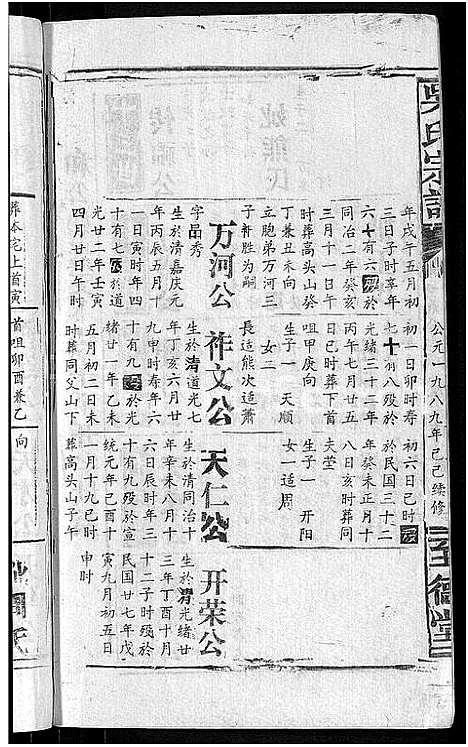 吴氏宗谱
公元一九八九年己巳续修
至德堂
年戌午五月初
三日子时享年
六十有六殁於
同治二年癸亥
三月十一日午
时葬高头山癸
丁兼丑未向
立胞弟万河三
子新胜为嗣
万河公
字晶秀
生於清嘉庆元
年丙辰五月十
一日寅时年四
十有七殁於道
光廿二年壬寅
四月廿日午时
初一日卯时寿
七十有八殁於
光绪三十二年
丙午七月廿五
日巳时葬下首
咀甲庚向
生子一 天顺
女二
長适熊次适萧
祚文公
生於清道光七
年丁亥六月廿
九甲时寿六
十有九殁於光
绪廿一年乙未
五月初二日未
时葬同父山下
初六日己时殁
於民国三十二
年癸未正月十
八日亥时葬同
夫茔
生子一 开阳
女一适周
天仁公
生於清同治十
年辛未八月十
六日辰时年三
十有九殁於宣
统元年己酉十
一月十九己时
葬高头山子午
开荣公
生於清光绪廿
三年丁酉十月
十二子时殁於
民国廿七年戊
寅九月初五日
申时
葬本宅上首寅
首咀卯酉兼乙
向